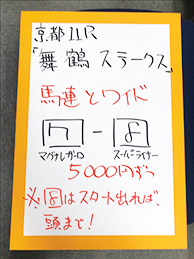 京都11R
「舞鶴ステークス」
馬連とワイド
7-8
マグナレガーロ スーパーライナー
5000円ずつ
※8はスタート出れば、
頭まで!